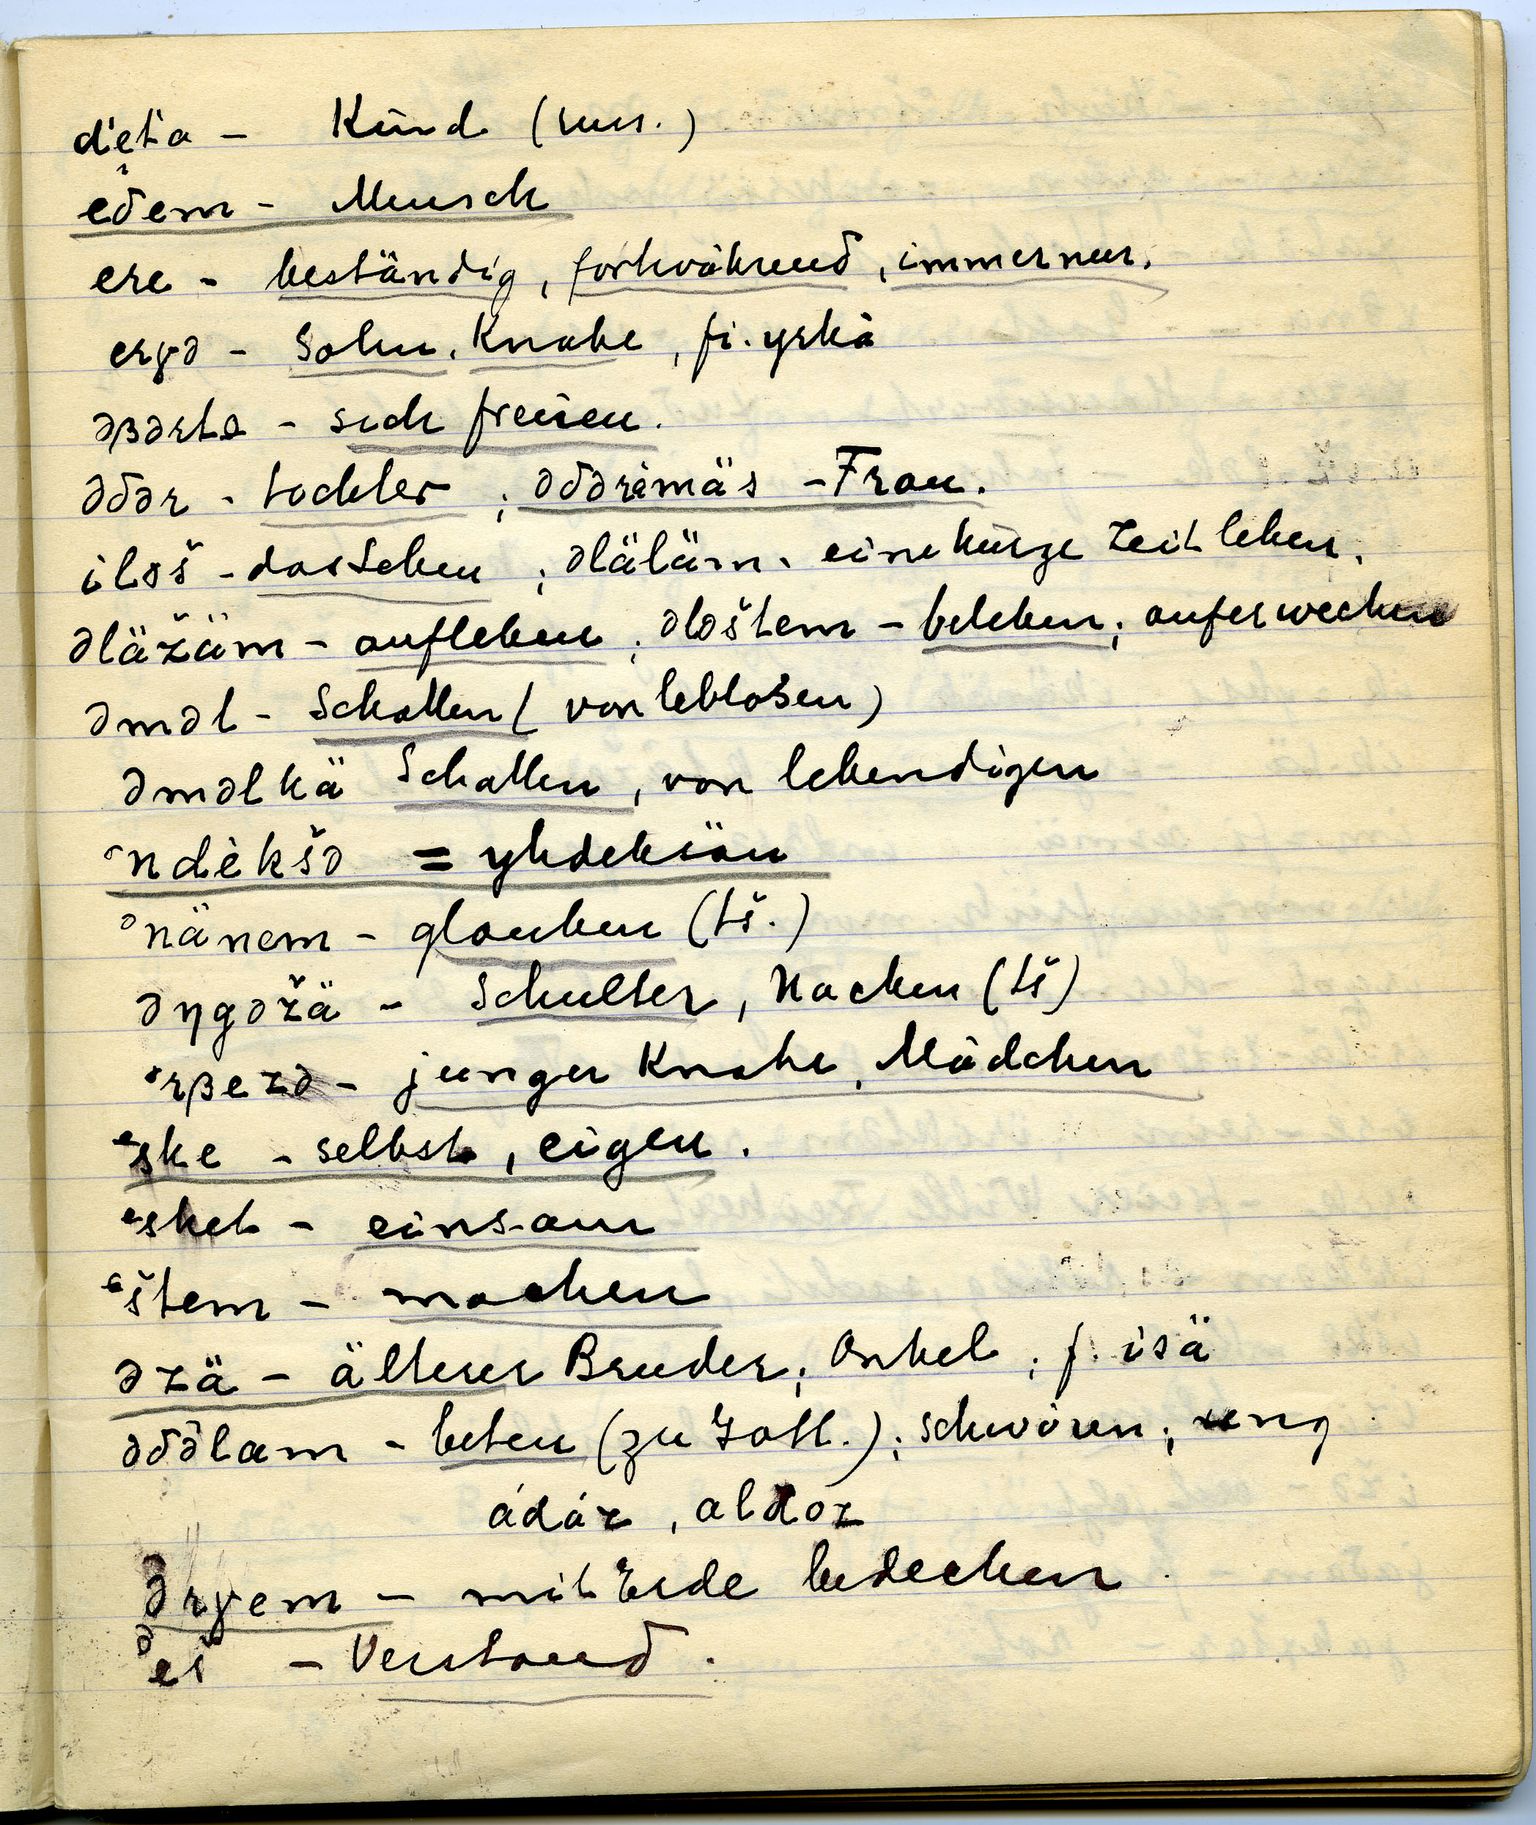 d'ет'a – Kind (russ.)
eδem – Mensch
ere – beständig, fortwährend, immernur.
erγə – Sohn, Knabe, fi. yrkä
əβərtə – sich freuen.
əδər – tochter; əδərämäs – Frau.
iləš – das Leben; əläläm. eine kurze Zeit leben.
əläžäm – aufleben; ələštem – beleben; auferwecken
əməl – Schatten (von leblosen)
əməlkä Schatten, von lebendigen
əndekšə = yhdeksän
ənänem – glauben (tš.)
əŋgəžä – Schulter, Nacken (tš)
ərβezə – junger Knabe, Mädchen
eske – selbst, eigen.
esket – einsam
eštem – machen
əzä – älterer Bruder; Onkel; f. isä
əδə̂lam – beten (zu Gott.); schwören; ung
ádáz, aldoz
ərγem – mit Erde bedecken
əš – Verstand.